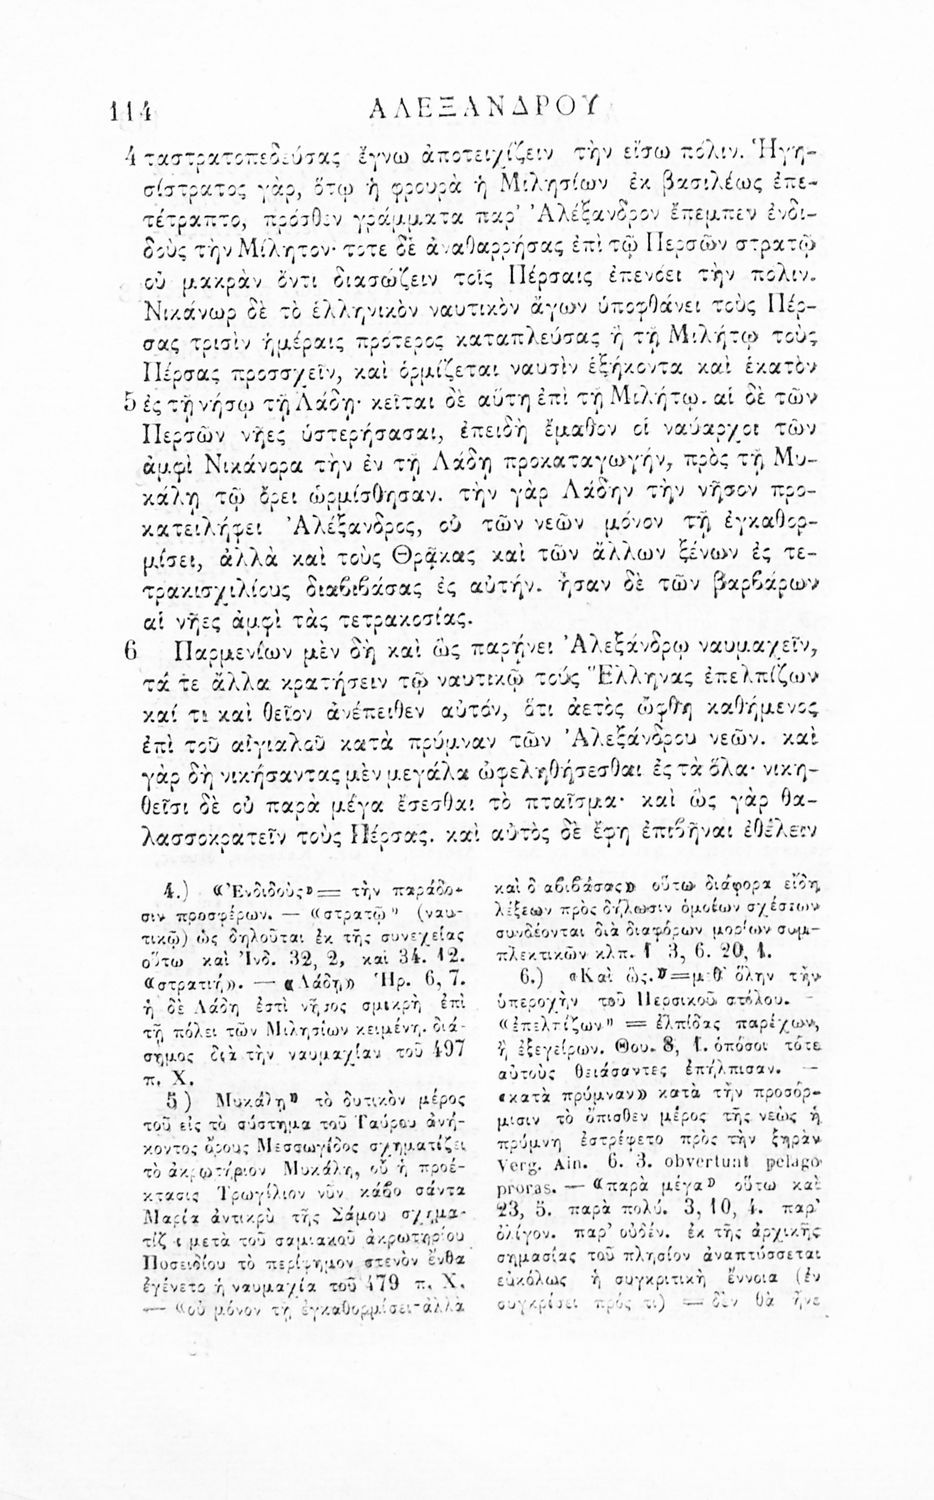 114 ΑΛΕΞΑΝΔΡΟΥ
4 ταστρατοπεδεύσας ἔγνω ἀποτειχίζειν τὴν εἴσω πόλιν. Ἡγη-
σίστρατος γὰρ, ὅτῳ ἡ φρουρὰ ἡ Μιλησίων ἐκ βασιλέως ἐπε-
τέτραπτο, πρόσθεν γράμματα παρ’ Ἀλέξανδρον ἔπεμπεν ἐνδι-
δοὺς τὴν Μίλητον· τοτε δὲ ἀναθαρρήσας ἐπὶ τῷ Περσῶν στρατῷ
οὐ μακρὰν ὄντι διασώζειν τοῖς Πέρσαις ἐπενόει τὴν πόλιν.
Νικάνωρ δὲ τὸ ἑλληνικὸν ναυτικὸν ἄγων ὑποφθάνει τοὺς Πέρ-
σας τρισὶν ἡμέραις πρότερος καταπλεύσας ἢ τῇ Μιλήτῳ τοὺς
Πέρσας προσσχεῖν, καὶ ὁρμίζεται ναυσὶν ἑξήκοντα καὶ ἑκατὸν
5 ἐς τῇ νήσῳ τῇ Λάδῃ· κεῖται δὲ αὕτη ἐπὶ τῇ Μιλήτῳ. αἱ δὲ τῶν
Περσῶν νῆες ὑστερήσασαι, ἐπειδὴ ἔμαθον οἱ ναύαρχοι τῶν
ἀμφὶ Νικάνορα τὴν ἐν τῇ Λάδῃ προκαταγωγήν, πρὸς τῇ Μυ-
κάλῃ τῷ ὄρει ὡρμίσθησαν. τὴν γὰρ Λάδην τὴν νῆσον προ-
κατειλήφει Ἀλέξανδρος, οὐ τῶν νεῶν μόνον τῇ ἐγκαθορ-
μίσει, ἀλλὰ καὶ τοὺς Θρᾷκας καὶ τῶν ἄλλων ξένων ἐς τε-
τρακισχιλίους διαβιβάσας ἐς αὐτήν. ἦσαν δὲ τῶν βαρβάρων
αἱ νῆες ἀμφὶ τὰς τετρακοσίας.
6 Παρμενίων μὲν δὴ καὶ ὣς παρῄνει Ἀλεξάνδρῳ ναυμαχεῖν,
τά τε ἄλλα κρατήσειν τῷ ναυτικῷ τούς Ἕλληνας ἐπελπίζων
καί τι καὶ θεῖον ἀνέπειθεν αὐτόν, ὅτι ἀετὸς ὤφθη καθήμενος
ἐπὶ τοῦ αἰγιαλοῦ κατὰ πρύμναν τῶν Ἀλεξάνδρου νεῶν. καὶ
γὰρ δὴ νικήσαντας μὲν μεγάλα ὠφεληθήσεσθαι ἐς τὰ ὅλα· νικη-
θεῖσι δὲ οὐ παρὰ μέγα ἔσεσθαι τὸ πταῖσμα· καὶ ὣς γὰρ θα-
λασσοκρατεῖν τοὺς Πέρσας. καὶ αὐτὸς δὲ ἔφη ἐπιβῆναι ἐθέλειν
4.) «Ἐνδιδοὺς» = τὴν παράδο-
σιν προσφέρων. — «στρατῷ» (ναυ-
τικῷ) ὡς δηλοῦται ἐκ τῆς συνεχείας
οὕτω καὶ Ἰνδ. 32, 2, καὶ 34. 12.
«στρατιή». — «Λάδῃ» Ἡρ. 6, 7.
ἡ δὲ Λάδη ἐστὶ νῆσος σμικρὴ ἐπὶ
τῇ πόλει τῶν Μιλησίων κειμένη. διά-
σημος διὰ τὴν ναυμαχίαν τοῦ 497
π. Χ.
5) Μυκάλη» τὸ δυτικὸν μέρος
τοῦ εἰς τὸ σύστημα τοῦ Ταύρου ἀνή-
κοντος ὄρους Μεσσωγίδος σχηματίζει
τὸ ἀκρωτήριον Μυκάλη, οὗ ἡ προέ-
κτασις Τρωγίλιον νῦν κάβο σάντα
Μαρία ἀντικρὺ τῆς Σάμου σχημα-
τίζει μετὰ τοῦ σαμιακοῦ ἀκρωτηρίου
Ποσειδίου τὸ περίφημον στενὸν ἔνθα
ἐγένετο ἡ ναυμαχία τοῦ 479 π. Χ.
— «οὐ μόνον τῇ ἐγκαθορμίσει-ἀλλὰ
καὶ διαβιβάσας» οὕτω διάφορα εἴδη
λέξεων πρὸς δήλωσιν ὁμοίων σχέσεων
συνδέονται διὰ διαφόρων μορίων συμ-
πλεκτικῶν κλπ. 1 3, 6. 20, 1.
6.) «Καὶ ὣς.» = μεθ’ ὅλην τὴν
ὑπεροχὴν τοῦ Περσικοῦ στόλου. —
«ἐπελπίζων» = ἐλπίδας παρέχων,
ἢ ἐξεγείρων. Θου. 8, 1. ὁπόσοι τότε
αὐτοὺς θειάσαντες ἐπήλπισαν. —
«κατὰ πρύμναν» κατὰ τὴν προσόρ-
μισιν τὸ ὄπισθεν μέρος τῆς νεὼς ἡ
πρύμνη ἐστρέφετο πρὸς τὴν ξηρὰν
Verg. Ain. 6. 3. obvertunt pelago
proras. — «παρὰ μέγα» οὕτω καὶ
23, 5. παρὰ πολύ. 3, 10, 4. παρ’
ὀλίγον. παρ’ οὐδέν. ἐκ τῆς ἀρχικῆς
σημασίας τοῦ πλησίον ἀναπτύσσεται
εὐκόλως ἡ συγκριτικὴ ἔννοια (ἐν
συγκρίσει πρός τι) = δὲν θὰ ἦνε